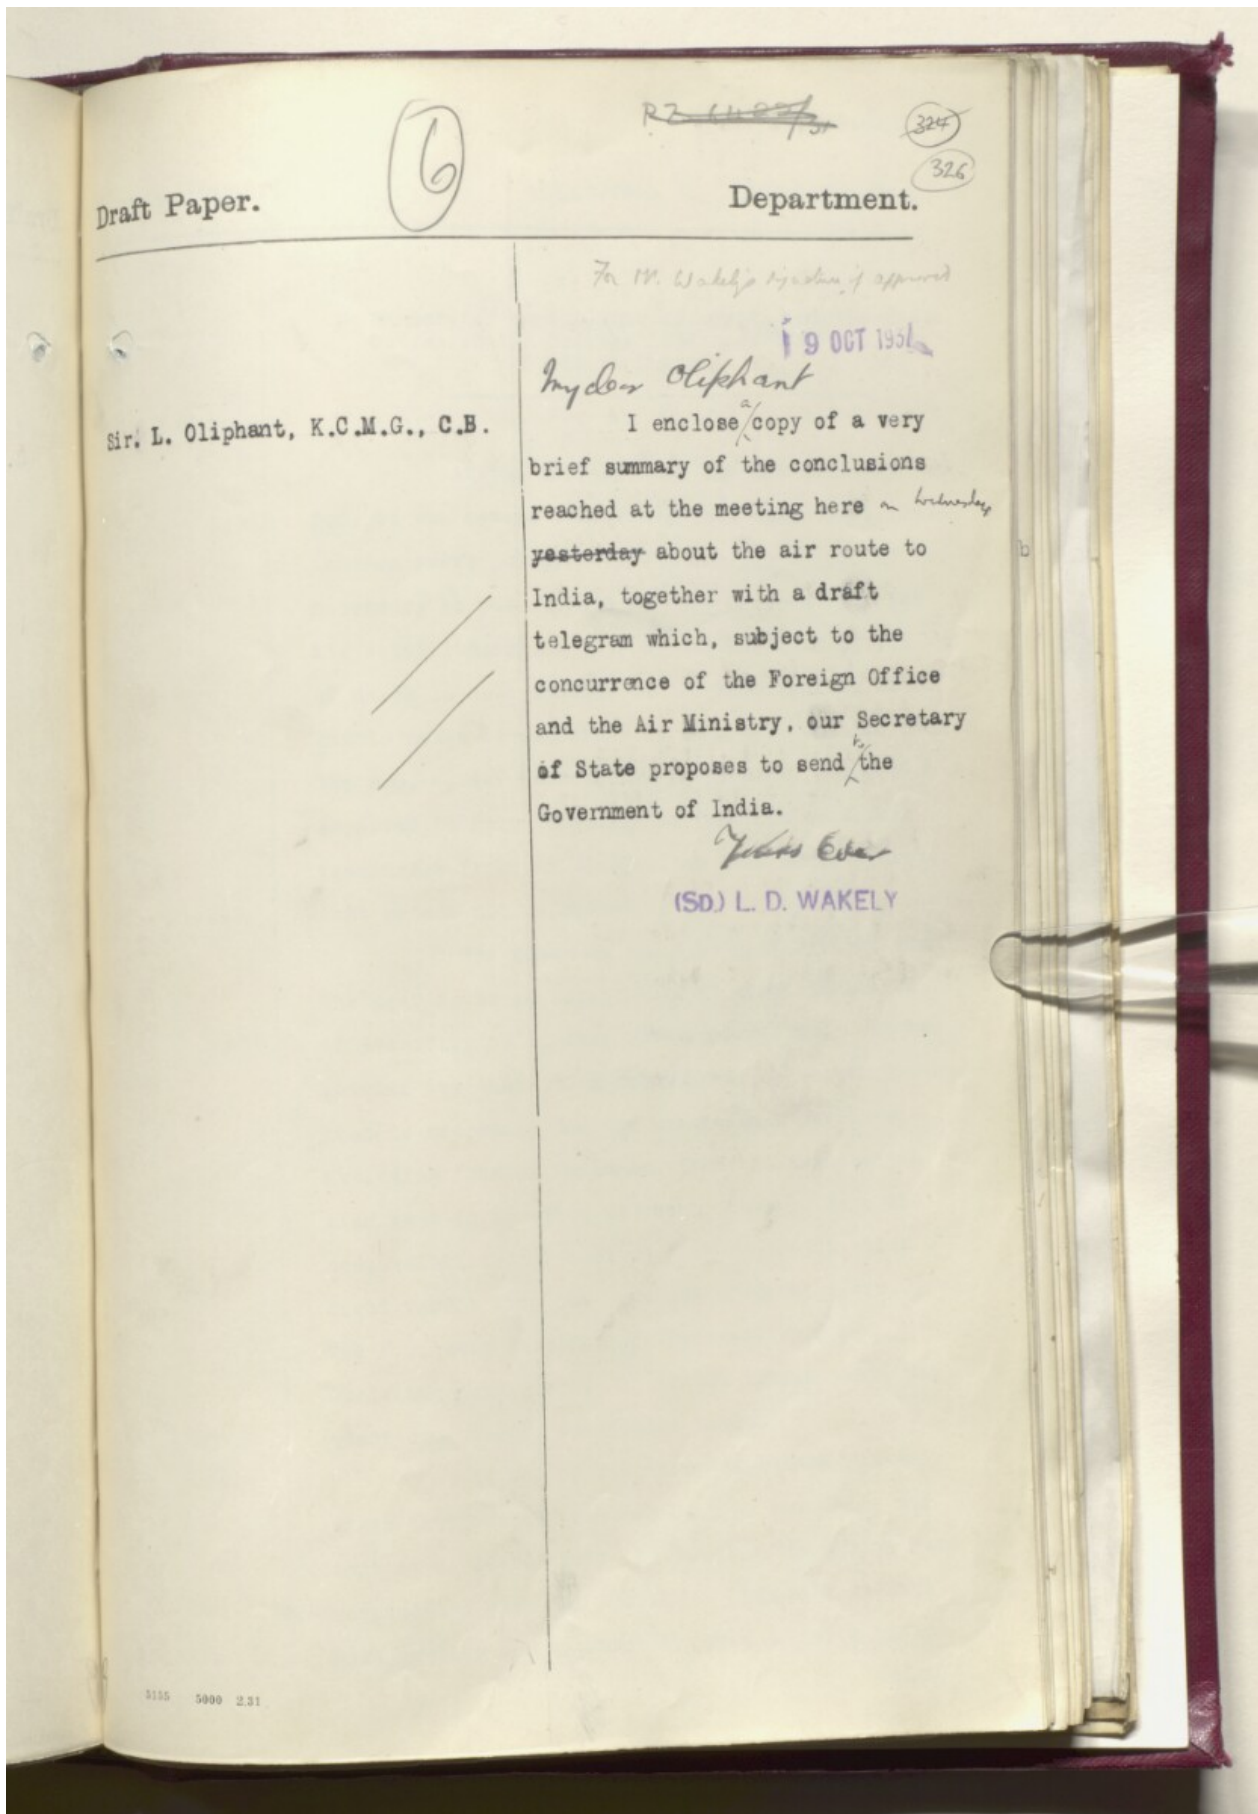 6
324
326
Draft Paper.
Department.
For Mr. Wakely's signature if approved
19 OCT 193
My dear Oliphant
Sir. L. Oliphant, K.C.M.G., C.B.
I enclose a copy of a very
brief summary of the conclusions
reached at the meeting here on Wednesday
yesterday about the air route to
India, together with a draft
telegram which, subject to the
concurrence of the Foreign Office
and the Air Ministry, our Secretary
of State proposes to send to the
Government of India.
Yours Ever
(SD.) L. D. WAKELY
b
5155 5000 2.31